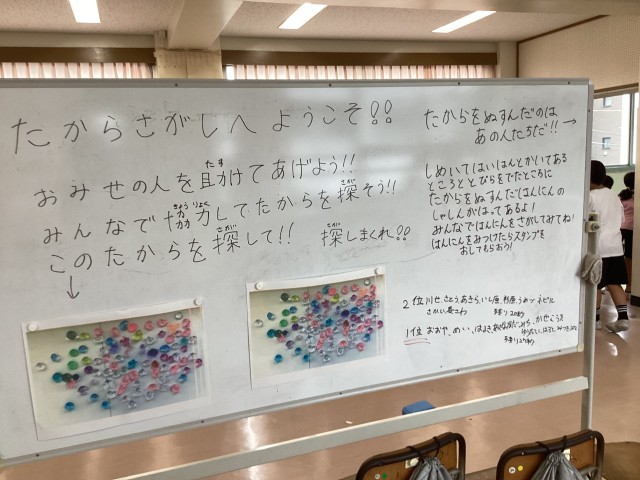 たからさがしへようこそ!!
おみせの人を助けてあげよう!!
たす
みんなで協力してたからを探そう!!
きょうりょく
さが
このたからを探して!! 探しまくれ!!
さが
さが
↓
たからをぬすんだのは
あの人たちだ!! →
しめいてはいはんとかいてある
ところととびらをでたところに
たからをぬすんだはんにんの
しゃしんがはってあるよ!
みんなではんにんをさがしてみてね!
はんにんをみつけたらスタンプを
おしてもらおう!
2位
1位